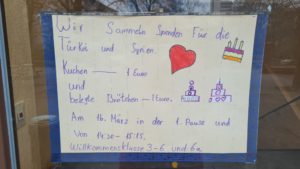 Wir Sammeln Spenden Für die
Türkei und Syrien.
Kuchen — 1 Euro
und
belegte Brötchen — 1 Euro.
Am 16. März in der 1. Pause und
Von 14:30 - 15:15.
Willkommensklasse 3-6 und 6a